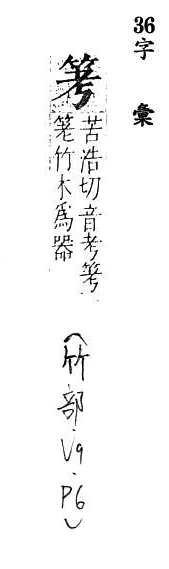 36字 彙
䈣
苦浩切音考䈣
笔竹木爲器
(竹部.V9.P6)